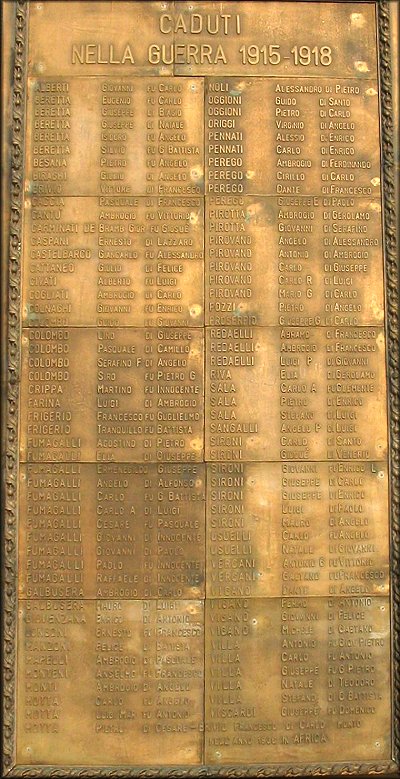 CADUTI
NELLA GUERRA 1915-1918
ALBERTI GIOVANNI FU CARLO
BERETTA EUGENIO FU CARLO
BERETTA GIUSEPPE DI BIAGIO
BERETTA GIUSEPPE DI NATALE
BERETTA GIULIO FU ANGELO
BERETTA SILVIO FU G BATTISTA
BESANA PIETRO FU ANGELO
BIRAGHI GIULIO FU ANGELO
BRIVIO VITTORE DI FRANCESCO
CACCIA PASQUALE DI FRANCESCO
CANTÙ AMBROGIO FU VITTORIO
CARMINATI DE BRAMB GIOR FU GIOSUÈ
CASPANI ERNESTO DI LAZZARO
CASTELBARCO GIANCARLO FU ALESSANDRO
CATTANEO GIULIO DI FELICE
CIVATI ALBERTO FU LUIGI
COGLIATI AMBROGIO DI CARLO
COLNAGHI GIOVANNI FU ENRICO
COLOMBO LUIGI DI GIOVANNI
COLOMBO LINO DI GIUSEPPE
COLOMBO PASQUALE DI CAMILLO
COLOMBO SERAFINO F DI ANGELO
COLOMBO SIRO FU PIETRO G
CRIPPA MARTINO FU INNOCENTE
FARINA LUIGI DI AMBROGIO
FRIGERIO FRANCESCO FU GUGLIELMO
FRIGERIO TRANQUILLO FU BATTISTA
FUMAGALLI AGOSTINO DI PIETRO
FUMAGALLI ELIA DI GIUSEPPE
FUMAGALLI ERMENEGILDO GIUSEPPE
FUMAGALLI ANGELO DI ALFONSO
FUMAGALLI CARLO FU G BATTISTA
FUMAGALLI CARLO A DI LUIGI
FUMAGALLI CESARE FU PASQUALE
FUMAGALLI GIOVANNI DI INNOCENTE
FUMAGALLI GIOVANNI DI PAOLO
FUMAGALLI PAOLO FU INNOCENTE
FUMAGALLI RAFFAELE DI INNOCENTE
GALBUSERA AMBROGIO DI CARLO
GALBUSERA MAURO DI LUIGI
ENRICO DI ANTONIO
ERNESTO FU FRANCESCO
MANZONI FELICE DI BATISTA
MAPELLI AMBROGIO DI PASQUALE
MONTENI ANSELMO FU FRANCESCO
MONTI AMBROGIO DI ANGELO
MOTTA CARLO FU
MOTTA LUIG MAR FU ANTONIO
MOTTA PIETRO DI CESARE
NOLI ALESSANDRO DI PIETRO
OGGIONI GUIDO DI SANTO
OGGIONI PIETRO DI CARLO
ORIGGI VIRGINIO DI ANGELO
PENNATI ALESSIO DI ENRICO
PENNATI CARLO DI ENRICO
PEREGO AMBROGIO DI FERDINANDO
PEREGO CIRILLO DI CARLO
PEREGO DANTE DI FRANCESCO
PEREGO GIUSEPPE E DI PAOLO
PIROTTA AMBROGIO DI GEROLAMO
PIROTTA GIOVANNI DI SERAFINO
PIROVANO ANGELO DI ALESSANDRO
PIROVANO ANTONIO DI AMBROGIO
PIROVANO CARLO DI GIUSEPPE
PIROVANO CARLO R DI LUIGI
PIROVANO MARIO G DI CARLO
POZZI PIETRO DI ANGELO
GIUSEPPE G DI CARLO
REDAELLI ABRAMO DI FRANCESCO
REDAELLI AMBROGIO DI FRANCESCO
REDAELLI LUIGI P DI GIOVANNI
RIVA ELIA DI GEROLAMO
SALA CARLO A FU CLEMENTE
SALA PIETRO DI ENRICO
SALA STEFANO DI LUIGI
SANGALLI ANGELO P DI LUIGI
SIRONI CARLO DI SANTO
SIRONI GIOSUÈ DI VENERIO
SIRONI GIOVANNI FU ENRICO L
SIRONI GIUSEPPE DI CARLO
SIRONI GIUSEPPE DI ENRICO
SIRONI LUIGI DI PAOLO
SIRONI MAURO DI ANGELO
USUELLI CARLO FU ANGELO
USUELLI NATALE DI GIOVANNI
VERGANI ANTONIO G FU VITTORIO
VERGANI GAETANO FU FRANCESCO
VIGANO DANTE DI ANGELO
VIGANO FERMO DI ANTONIO
VIGANO GIOVANNI DI FELICE
VIGANO MICHELE DI GAETANO
VILLA ANTONIO FU GIO PIETRO
VILLA CARLO FU ANTONIO
VILLA GIUSEPPE FU G PIETRO
VILLA NATALE DI TEODORO
VILLA STEFANO DI G BATTISTA
VISCARDI GIUSEPPE FU DOMENICO
FRANCESCO DI CARLO MORTO
NELL'ANNO 1936 IN AFRICA